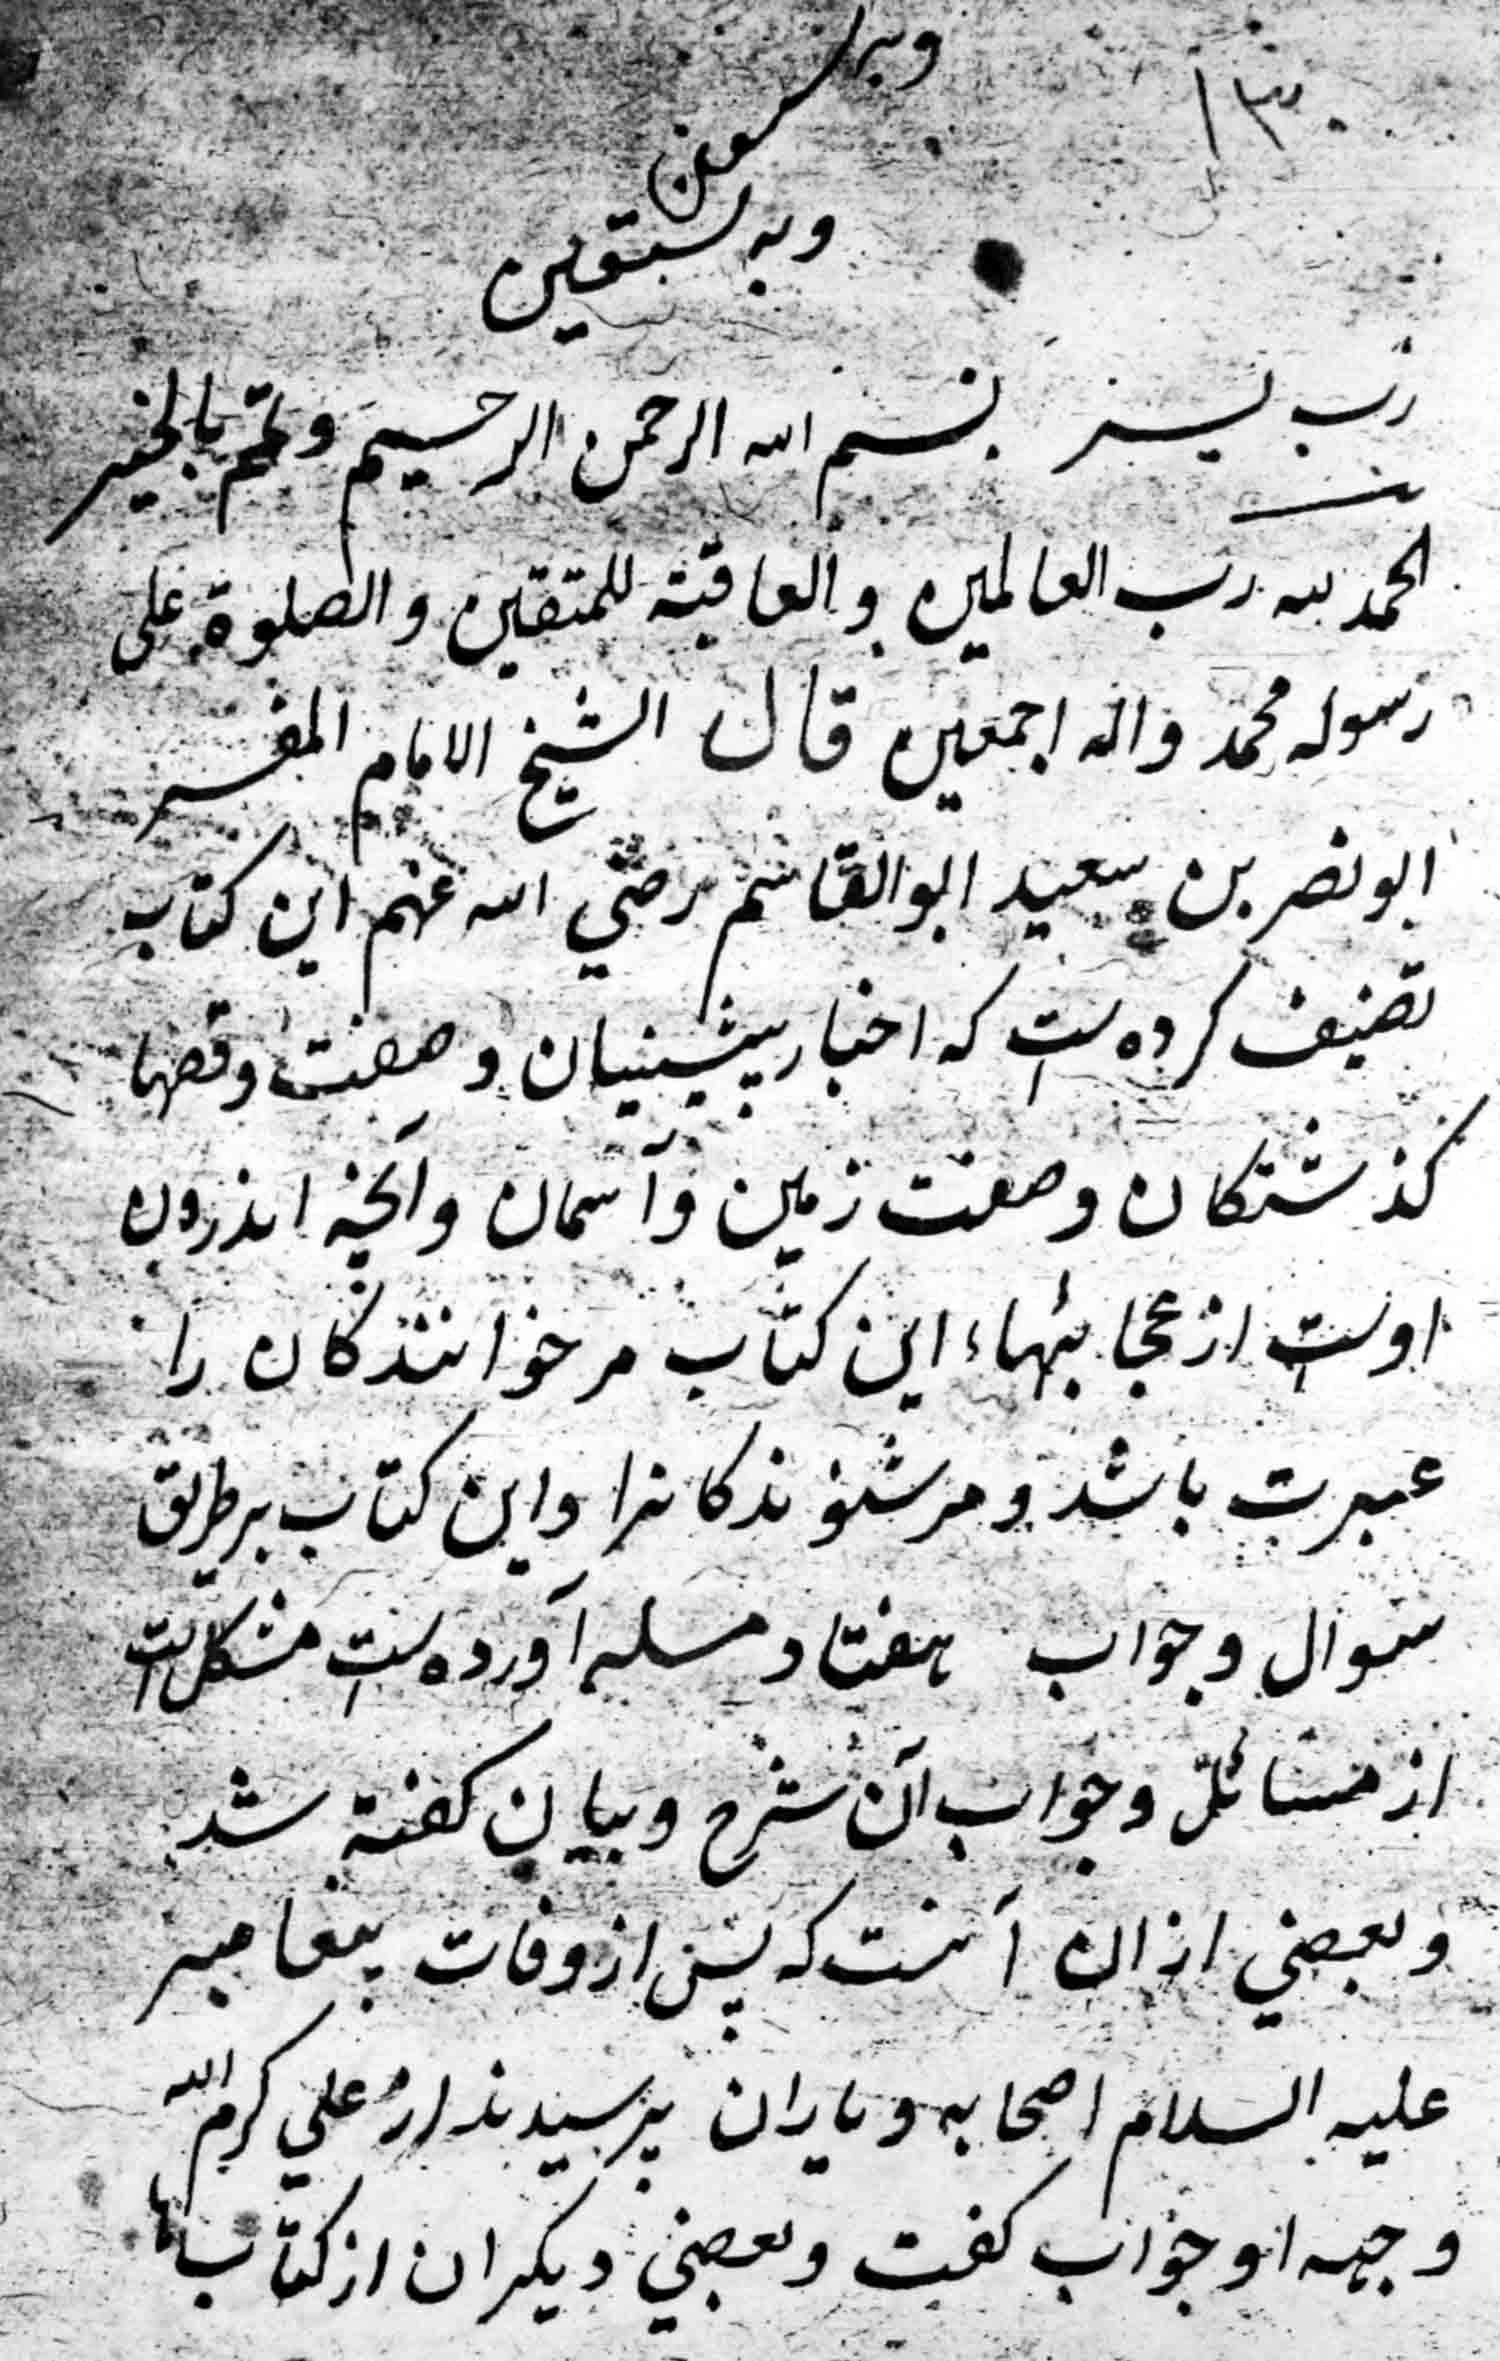 ۱۳۰
وبه نستعین
وبه نستعین
رب یسر بسم الله الرحمن الرحیم وتمم بالخیر
الحمد لله رب العالمین والعاقبة للمتقین والصلوة علی
رسوله محمد واله اجمعین قال الشیخ الامام المفسر
ابو نصر بن سعید ابوالقاسم رضی الله عنهم این کتاب
تصنیف کرده است که اخبار پیشینیان وصفت وقصها
کذشتکان وصفت زمین وآسمان وآنچه اندرون
اوست از عجایبهاء این کتاب مر خوانندکان را
عبرت باشد ومر شنوندکانرا واین کتاب بر طریق
سوال وجواب هفتاد مسله آورده است مشکل است
از مسائل وجواب آن شرح وبیان کفته شد
وبعضی ازان آنست که پس از وفات پیغامبر
علیه السلام اصحابه ویاران پرسیدند از علی کرم الله
وجهه او جواب کفت وبعضی دیکران از کتابها